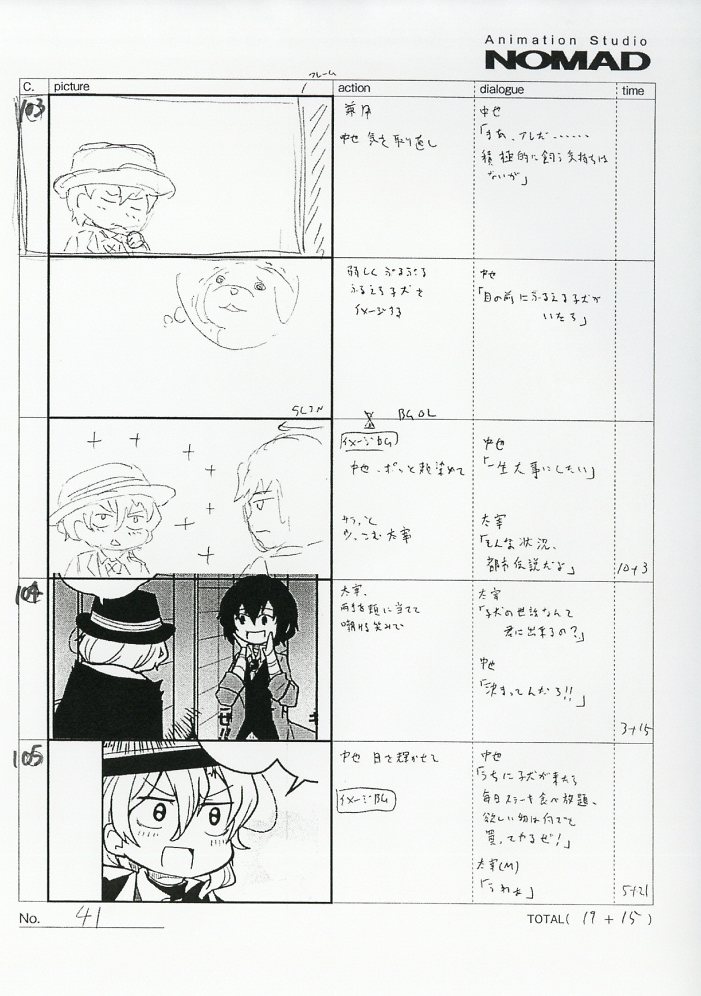 Animation Studio
NOMAD
C. picture action dialogue time
フレーム
103
中也 気を取り直し
中也
「まあ、アレだ・・・・・・
積極的に飼う気持ちは
ないが」
弱しく ぷるぷる
ふるえる子犬を
イメージする
中也
「目の前にふるえる子犬が
いたら」
BG OL
イメージBG
中也、ポッと頬染めて
中也
「一生大事にしたい」
太宰
太宰
「そんな状況、
都市伝説だよ」
10+3
104
太宰、
両手を頬に当てて
嘲ける笑みで
太宰
「子犬の世話なんて
君に出来るの?」
中也
「決まってんだろ!!」
3+15
105
中也 目を輝かせて
イメージBG
中也
「うちに子犬が来たら
毎日ステーキ食べ放題、
欲しい物は何でも
買ってやるぜ!」
太宰(M)
「うわぁ」
5+21
No. 41
TOTAL( 19 + 15 )